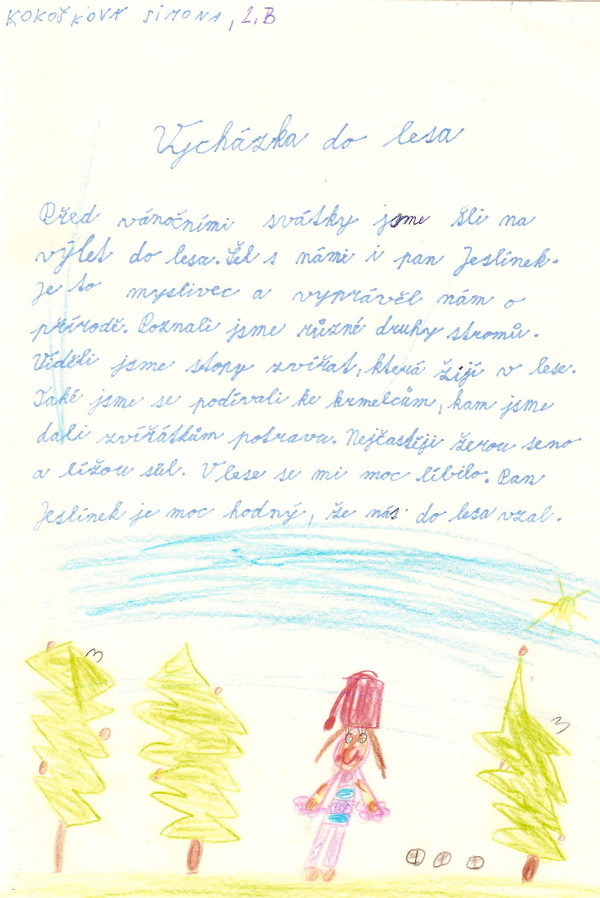 KOKOŠKOVÁ SIMONA, 2.B
Vycházka do lesa
Před vánočními svátky jsme šli na
výlet do lesa. Šel s námi i pan Jeslínek.
Je to myslivec a vyprávěl nám o
přírodě. Poznali jsme různé druhy stromů.
Viděli jsme stopy zvířat, která žijí v lese.
Také jsme se podívali ke krmelcům, kam jsme
dali zvířátkům potravu. Nejčastěji žerou seno
a lížou sůl. V lese se mi moc líbilo. Pan
Jeslínek je moc hodný, že nás do lesa vzal.